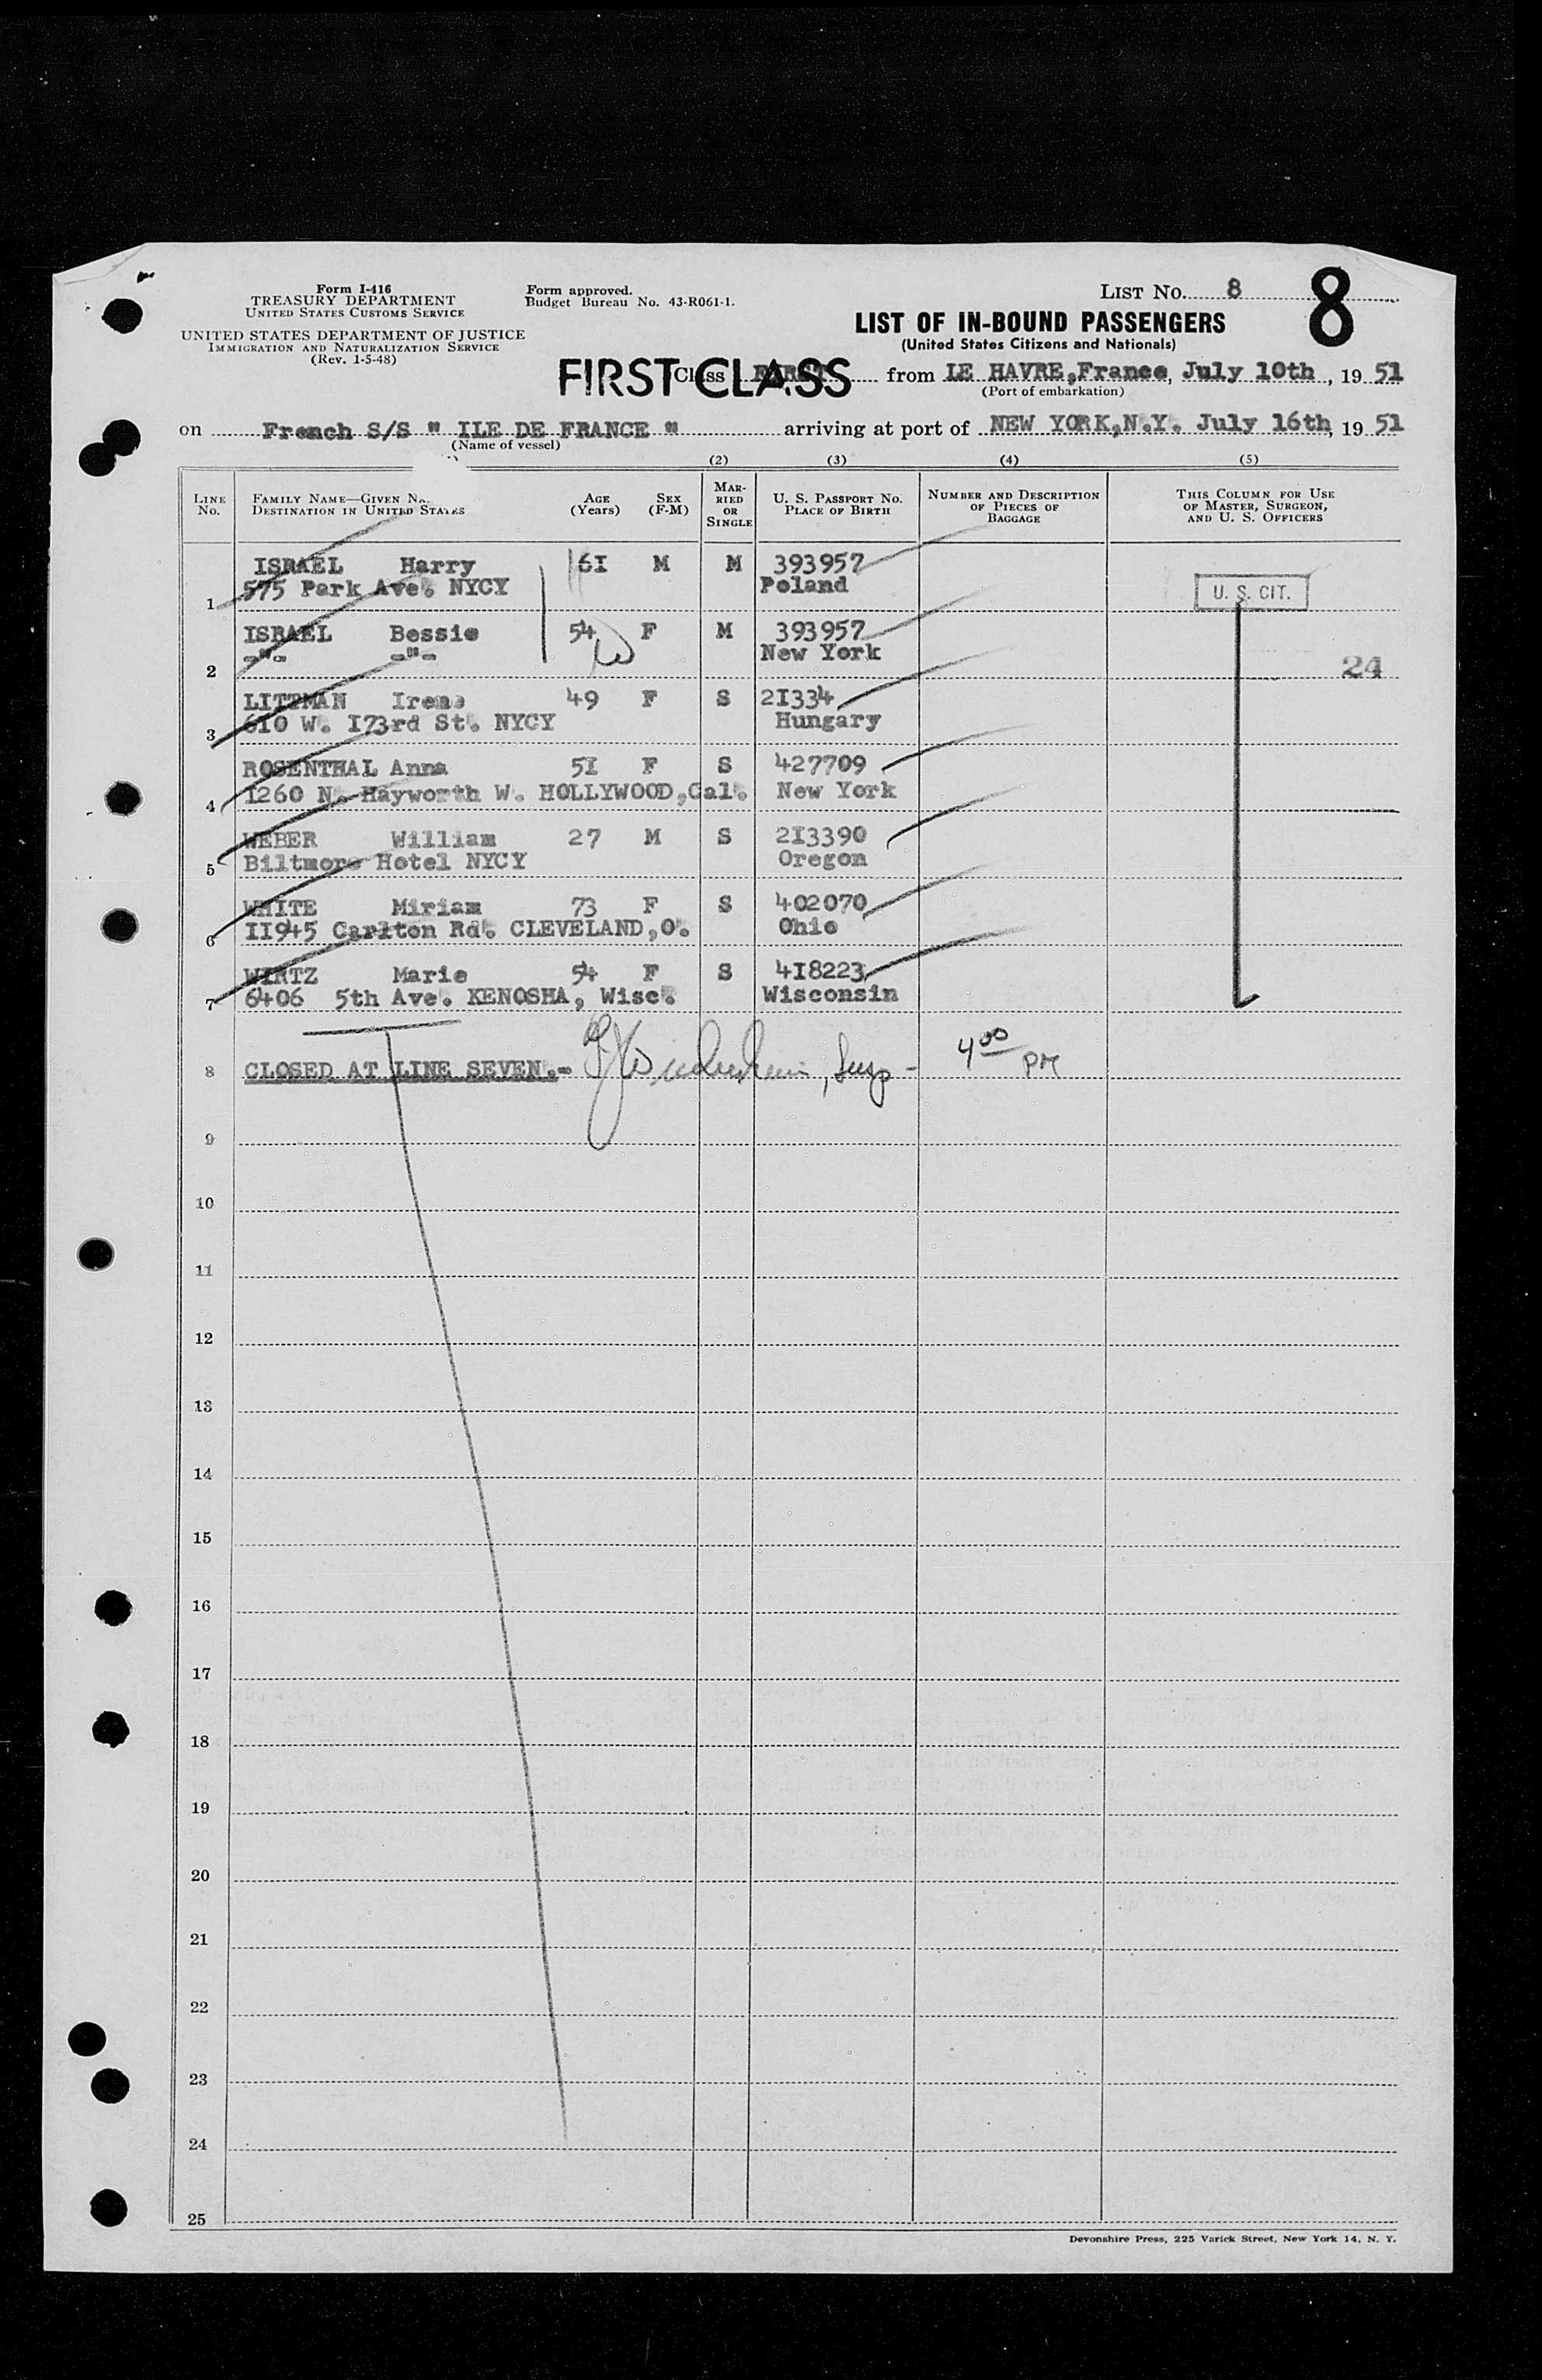 Form I-416
TREASURY DEPARTMENT
UNITED STATES CUSTOMS SERVICE
UNITED STATES DEPARTMENT OF JUSTICE
IMMIGRATION AND NATURALIZATION SERVICE
(Rev. 1-5-48)
Form approved.
Budget Bureau No. 43-R061-1.
LIST NO. 8
8
LIST OF IN-BOUND PASSENGERS
(United States Citizens and Nationals)
FIRST CLASS
Class FIRST from LE HAVRE,France, July 10th, 19 51
(Port of embarkation)
on French S/S " ILE DE FRANCE " arriving at port of NEW YORK,N.Y. July 16th, 19 51
(Name of vessel)
(2) (3) (4) (5)
LINE NO.
FAMILY NAME—GIVEN NA
DESTINATION IN UNITED STATES
AGE (Years)
SEX (F-M)
MARRIED OR SINGLE
U. S. PASSPORT NO.
PLACE OF BIRTH
NUMBER AND DESCRIPTION OF PIECES OF BAGGAGE
THIS COLUMN FOR USE OF MASTER, SURGEON, AND U. S. OFFICERS
ISRAEL Harry 6I M M 393957
1 575 Park Ave. NYCY Poland U. S. CIT.
ISRAEL Bessie 54 F M 393957
2 -"- -"- New York 24
LITTMAN Irene 49 F S 2I334
3 610 W. I73rd St. NYCY Hungary
ROSENTHAL Anna 5I F S 427709
4 I260 N. Hayworth W. HOLLYWOOD,Cal. New York
WEBER William 27 M S 2I3390
5 Biltmore Hotel NYCY Oregon
WHITE Miriam 73 F S 402070
6 II945 Carlton Rd. CLEVELAND,O. Ohio
WIRTZ Marie 54 F S 4I8223
7 6406 5th Ave. KENOSHA, Wisc. Wisconsin
8 CLOSED AT LINE SEVEN.- , Insp - 4 00 PM
9
10
11
12
13
14
15
16
17
18
19
20
21
22
23
24
25
Devonshire Press, 225 Varick Street, New York 14, N. Y.